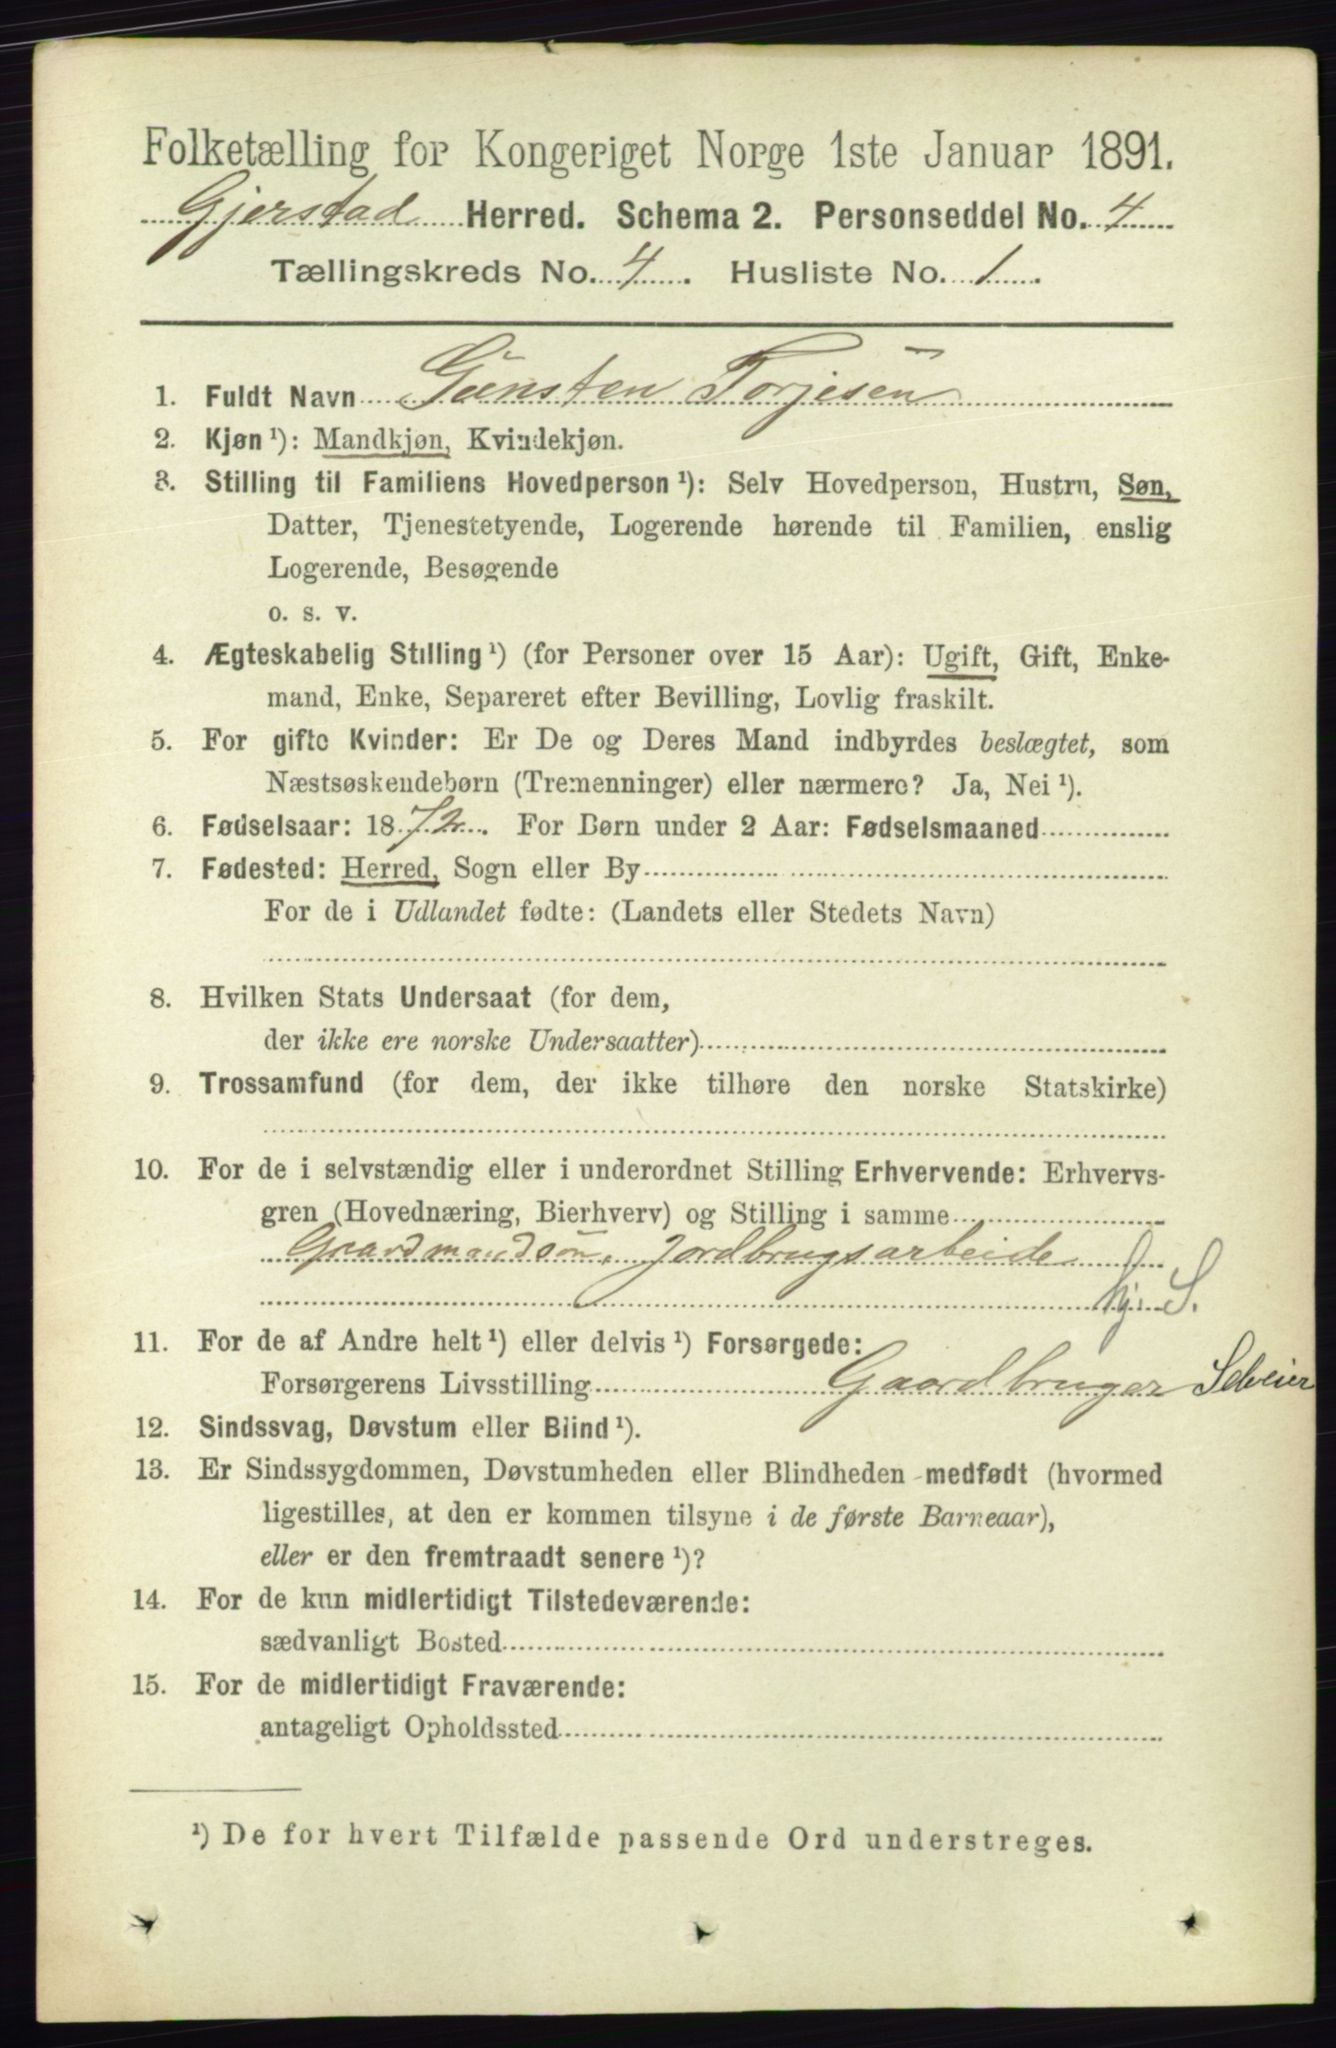 Folketælling for Kongeriget Norge 1ste Januar 1891.
Gjerstad Herred. Schema 2. Personseddel No. 4
Tællingskreds No. 4. Husliste No. 1.
1. Fuldt Navn Gunsten Torjesen
2. Kjøn ¹): Mandkjøn, Kvindekjøn.
3. Stilling til Familiens Hovedperson ¹): Selv Hovedperson, Hustru, Søn,
Datter, Tjenestetyende, Logerende hørende til Familien, enslig
Logerende, Besøgende
o. s. v.
4. Ægteskabelig Stilling ¹) (for Personer over 15 Aar): Ugift, Gift, Enke-
mand, Enke, Separeret efter Bevilling, Lovlig fraskilt.
5. For gifte Kvinder: Er De og Deres Mand indbyrdes beslægtet, som
Næstsøskendebørn (Tremenninger) eller nærmere? Ja, Nei ¹).
6. Fødselsaar: 1872. For Børn under 2 Aar: Fødselsmaaned
7. Fødested: Herred, Sogn eller By
For de i Udlandet fødte: (Landets eller Stedets Navn)
8. Hvilken Stats Undersaat (for dem,
der ikke ere norske Undersaatter)
9. Trossamfund (for dem, der ikke tilhøre den norske Statskirke)
10. For de i selvstændig eller i underordnet Stilling Erhvervende: Erhvervs-
gren (Hovednæring, Bierhverv) og Stilling i samme
Gaardmandsøn, Jordbrugsarbeide
S.
11. For de af Andre helt ¹) eller delvis ¹) Forsørgede:
Forsørgerens Livsstilling Gaardbruger Selveier
12. Sindssvag, Døvstum eller Blind ¹).
13. Er Sindssygdommen, Døvstumheden eller Blindheden medfødt (hvormed
ligestilles, at den er kommen tilsyne i de første Barneaar),
eller er den fremtraadt senere ¹)?
14. For de kun midlertidigt Tilstedeværende:
sædvanligt Bosted
15. For de midlertidigt Fraværende:
antageligt Opholdssted
¹) De for hvert Tilfælde passende Ord understreges.